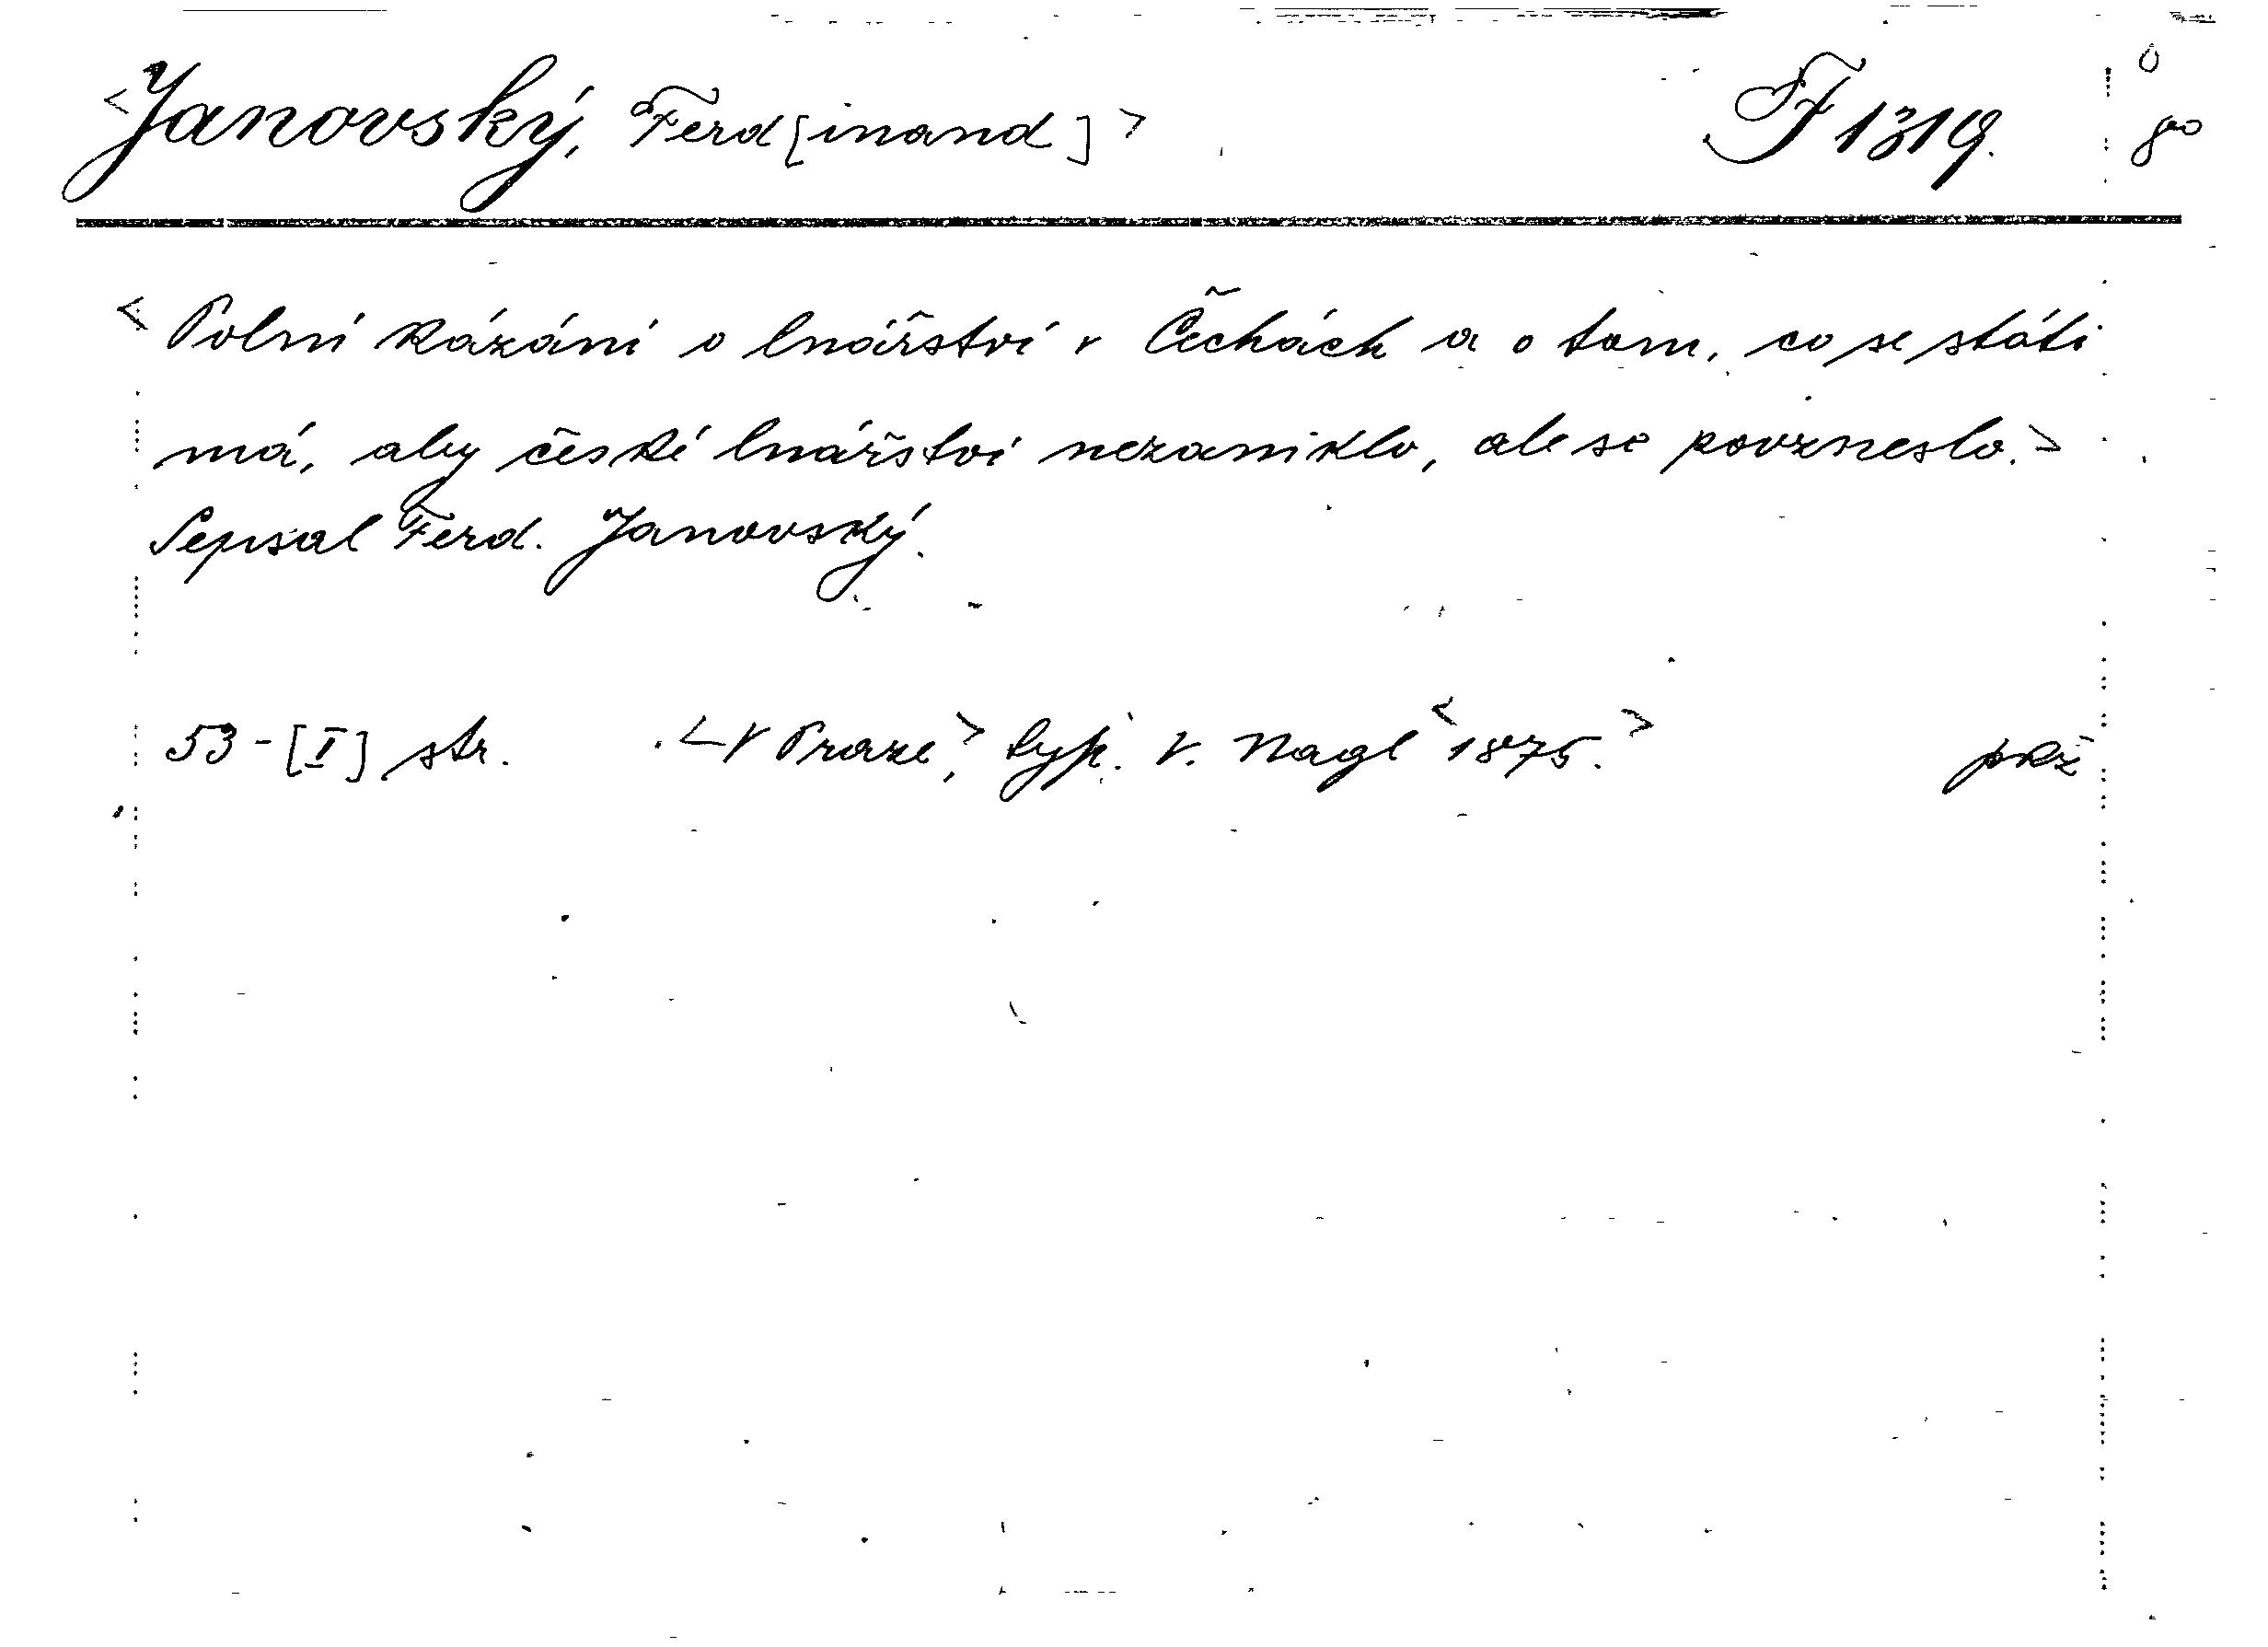 <Janovský, Ferd[inand]> F 1319. 8°
<Polní kázání o lnářství v Čechách a o tom, co se státi
má, aby české lnářství nezaniklo, ale se povzneslo.>
Sepsal Ferd. Janovský.
53-[I] str. <V Praze,> typ. V. Nagl <1875.> pkž